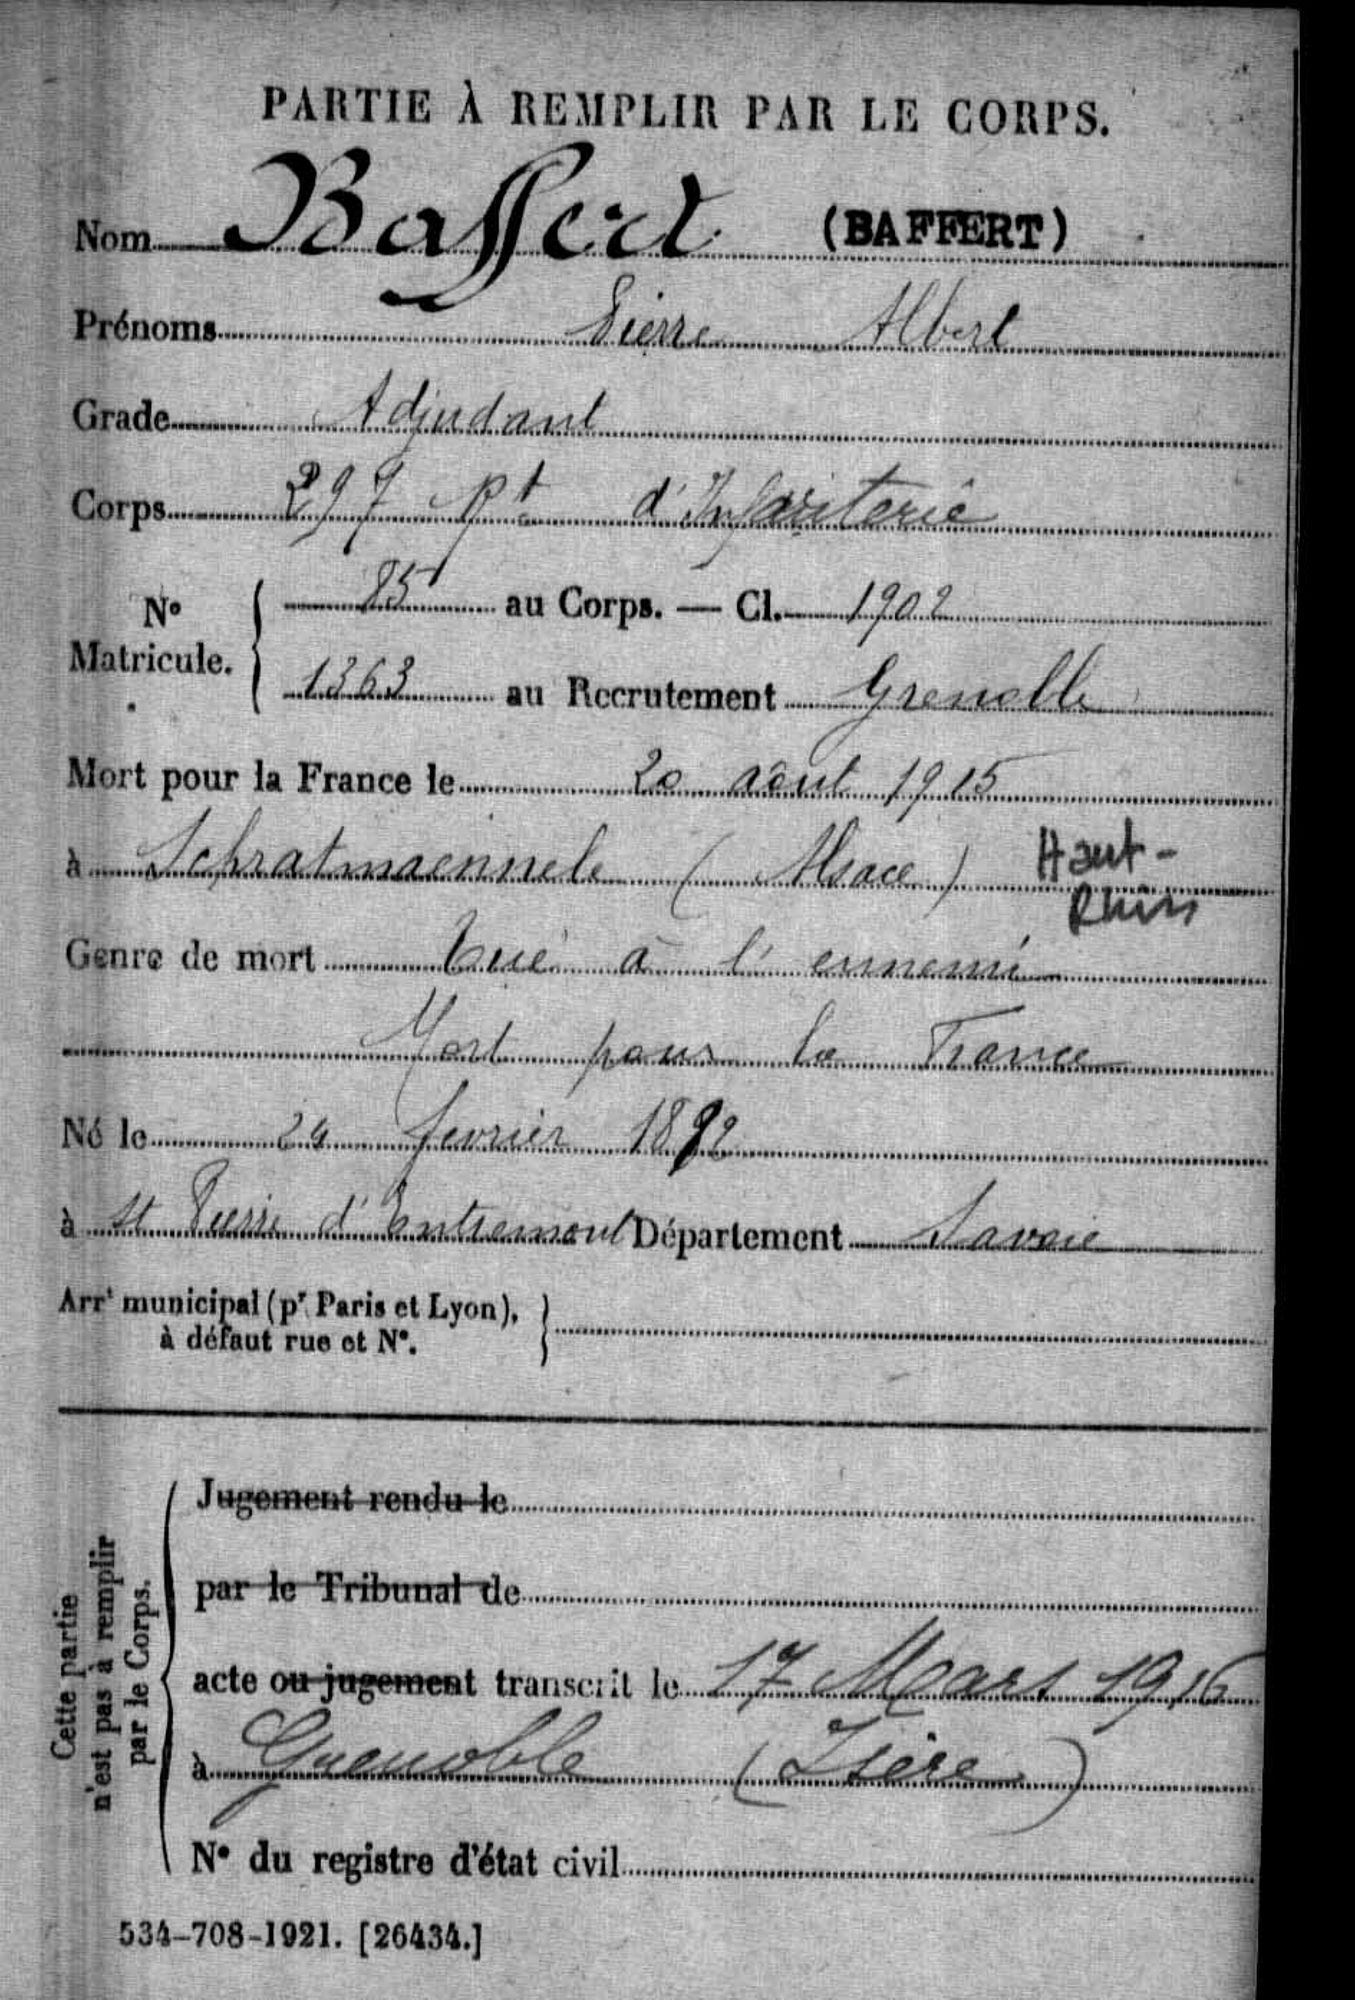 PARTIE À REMPLIR PAR LE CORPS.
Nom Baffert (BAFFERT)
Prénoms Pierre Albert
Grade Adjudant
Corps 297 Rt d'Infanterie
N° Matricule. { 85 au Corps. — Cl. 1902
1363 au Recrutement Grenoble
Mort pour la France le 20 août 1915
à Schratmaennele (Alsace) Haut-Rhin
Genre de mort Tué à l'ennemi
Mort pour la France
Né le 24 fevrier 1882
à St Pierre d'Entremont Département Savoie
Arrt municipal (pr Paris et Lyon), }
à défaut rue et N°.
Cette partie n'est pas à remplir par le Corps.
Jugement rendu le
par le Tribunal de
acte ou jugement transcrit le 17 Mars 1916
à Grenoble (Isère)
N° du registre d'état civil
534-708-1921. [26434.]